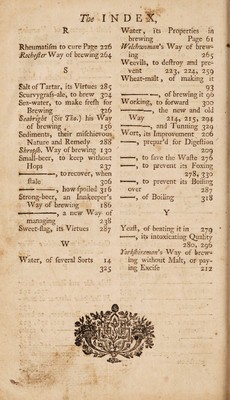 The INDEX,
R
Rheumatism to cure Page 226
Rochester Way of brewing 264
S
Salt of Tartar, its Virtues 285
Scurvygrass-ale, to brew 304
Sea-water, to make fresh for
Brewing 326
Seabright (Sir Tho.) his Way
of brewing 156
Sediments, their mischievous
Nature and Remedy 288
Shropsh. Way of brewing 130
Small-beer, to keep without
Hops 237
——, to recover, when
stale 306
——, how spoiled 316
Strong-beer, an Innkeeper's
Way of brewing 186
——, a new Way of
managing 238
Sweet-flag, its Virtues 287
W
Water, of several Sorts 14
325
Water, its Properties in
brewing Page 61
Welchmen's Way of brew-
ing 265
Weevils, to destroy and pre-
vent 223, 224, 259
Wheat-malt, of making it
93
——, of brewing it 90
Working, to forward 300
——, the new and old
Way 214, 215, 294
——, and Tunning 329
Wort, its Improvement 206
——, prepar'd for Digestion
209
——, to save the Waste 276
——, to prevent its Foxing
278, 330
——, to prevent its Boiling
over 287
——, of Boiling 318
Y
Yeast, of beating it in 279
——, its intoxicating Quality
280, 296
Yorkshiremen's Way of brew-
ing without Malt, or pay-
ing Excise 212